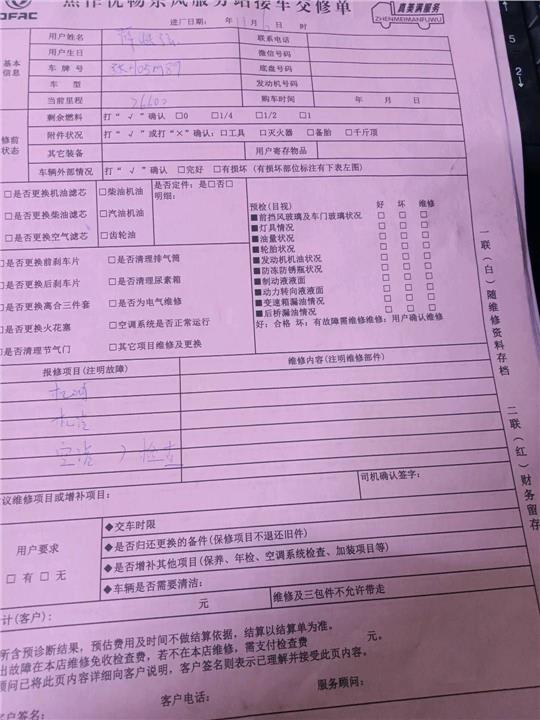 DFAC
焦作优畅东风服务站接车交修单
真美满服务
ZHENMEIMANFUWU
进厂日期: 年 月 日 时
基本信息
用户姓名 联系电话
用户生日 微信号码
车 牌 号 底盘号码
车 型 发动机号码
当前里程 26600 购车时间 年 月 日
修前状态
剩余燃料 打“√”确认 □0 □1/4 □1/2 □1
附件状况 打“√”或打“×”确认:□工具 □灭火器 □备胎 □千斤顶
其它装备 用户寄存物品
车辆外部情况 打“√”确认 □完好 □有损坏(有损坏部位标注有下表左图)
□是否更换机油滤芯 □柴油机油 是否定件: 是□否□
□是否更换柴油滤芯 □汽油机油 明细:
□是否更换空气滤芯 □齿轮油
□是否更换前刹车片 □是否清理排气筒
□是否更换后刹车片 □是否清理尿素箱
□是否更换离合三件套 □是否为电气维修
□是否更换火花塞 □空调系统是否正常运行
□是否清理节气门 □其它项目维修及更换
预检(目视) 好 坏 维修
■前挡风玻璃及车门玻璃状况 □ □ □
■灯具情况 □ □ □
■油量状况 □ □ □
■轮胎状况 □ □ □
■发动机机油状况 □ □ □
■防冻防锈瓶状况 □ □ □
■制动液液面 □ □ □
■动力转向液液面 □ □ □
■变速箱漏油情况 □ □ □
■后桥漏油情况 □ □ □
好: 合格 坏: 有故障需维修维修: 用户确认维修
报修项目(注明故障) 维修内容(注明维修部件)
机油
机滤
空滤 检查
议维修项目或增补项目: 司机确认签字:
用户要求
□ 有 □ 无
◆交车时限
◆是否归还更换的备件(保修项目不退还旧件)
◆是否增补其他项目(保养、年检、空调系统检查、加装项目等)
◆车辆是否需要清洁:
计(客户): 元 维修及三包件不允许带走
所含预诊断结果,预估费用及时间不做结算依据,结算以结算单为准。
出故障在本店维修免收检查费,若不在本店维修,需支付检查费 元。
顾问已将此页内容详细向客户说明,客户签名则表示已理解并接受此页内容。
客户签名: 客户电话: 服务顾问:
一联(白)随维修资料存档
二联(红)财务留存
5
2